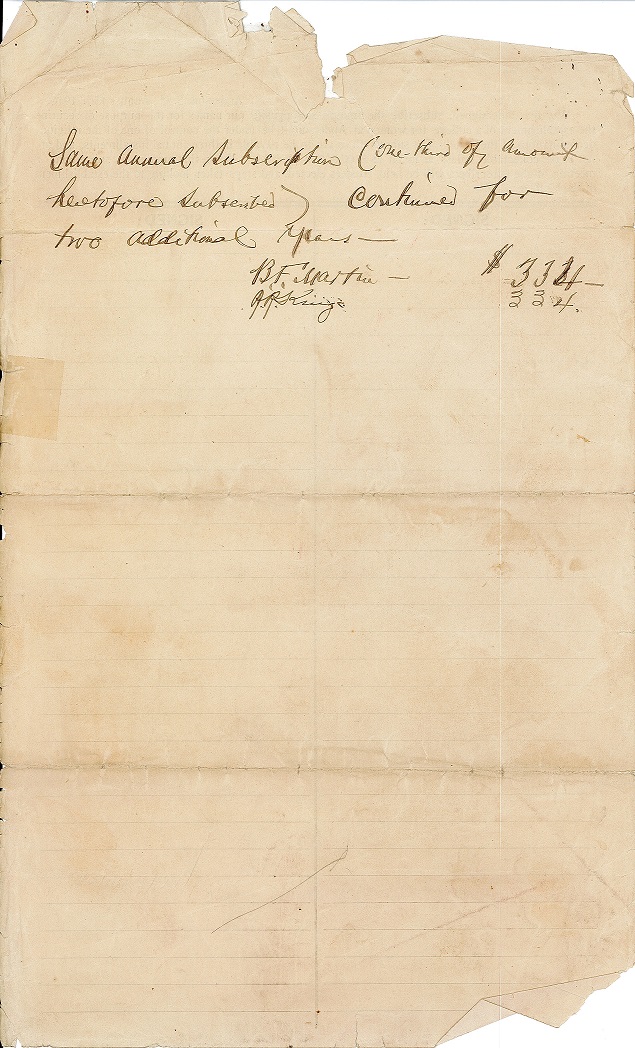 Same annual subscription (one-third of amount
heretofore subscribed) continued for
two additional years—
B.F. Martin — $ 334—
J.R. King 334.